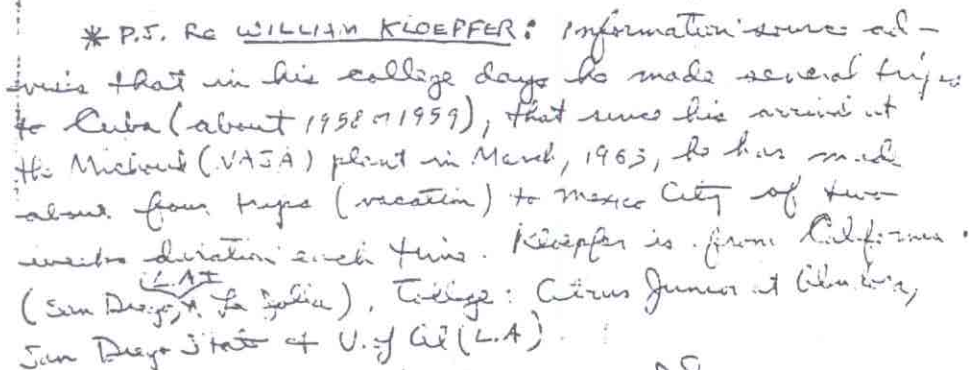 * P.S. Re WILLIAM KLOEPFER: Information source ad-
vises that in his college days he made several trips
to Cuba (about 1958 or 1959), that since his arrival at
the Michoud (NASA) plant in March, 1963, he has made
about four trips (vacation) to Mexico City of two
weeks duration each time. Kloepfer is from California.
(San Diego, L.A., La Jolla). College: Citrus Junior at
San Diego State & U. of Cal (L.A).